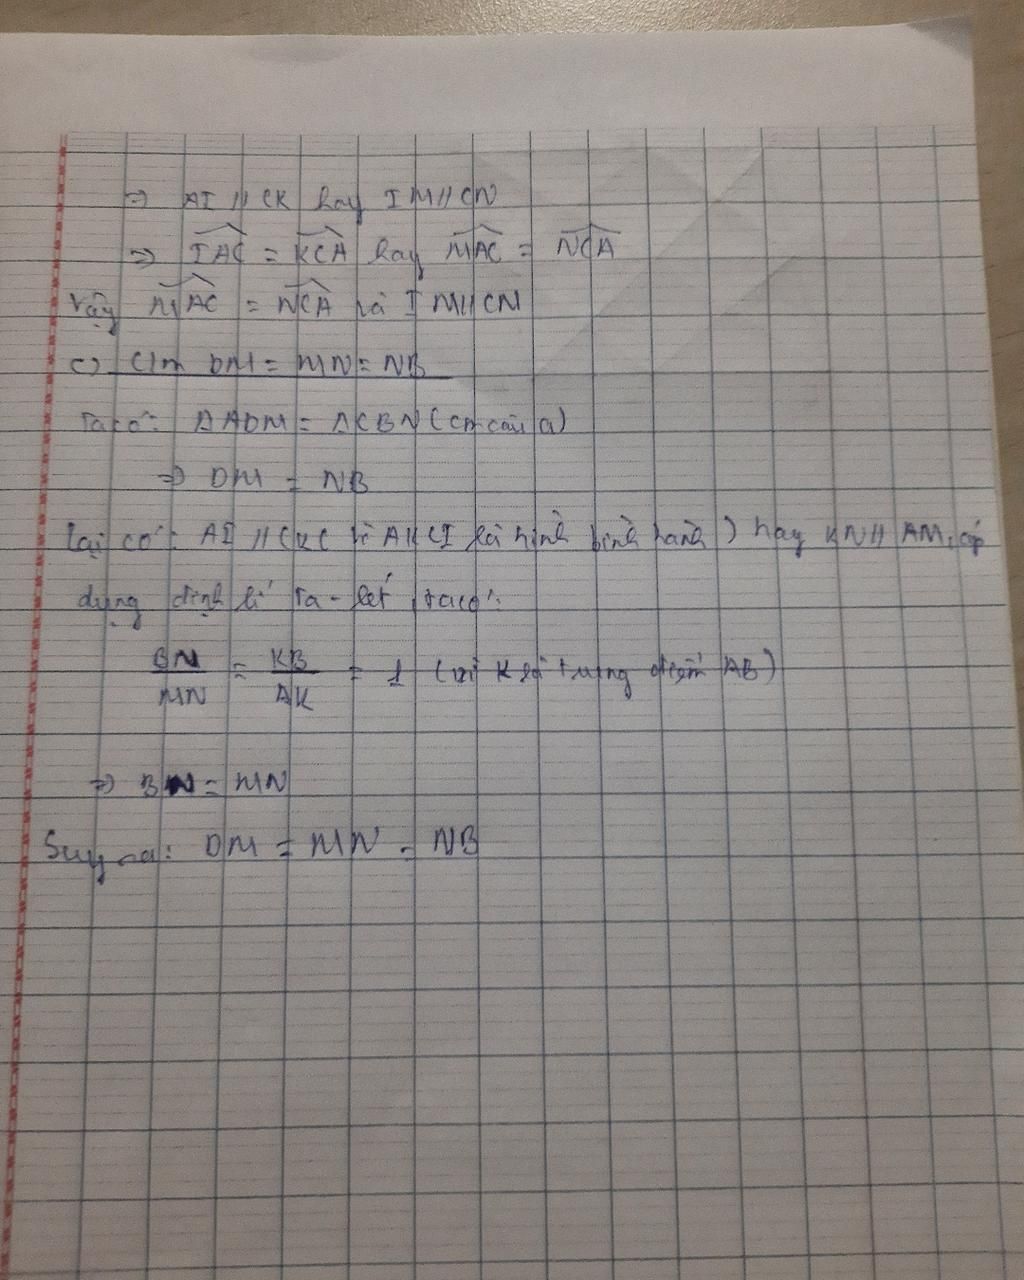 => AI // CK hay IM // CN
=> IAC = KCA hay MAC = NCA
Vậy MAC = NCA và IM // CN
c) C/m DM = MN = NB
Ta có: ΔADM = ΔCBN (cm câu a)
=> DM = NB
Lại có: AI // CK ( vì AKCI là hình bình hành ) hay KN // AM, áp
dụng định lí Ta-lét, ta có:
BN/MN = KB/AK = 1 (vì K là trung điểm AB)
=> BN = MN
Suy ra: DM = MN = NB